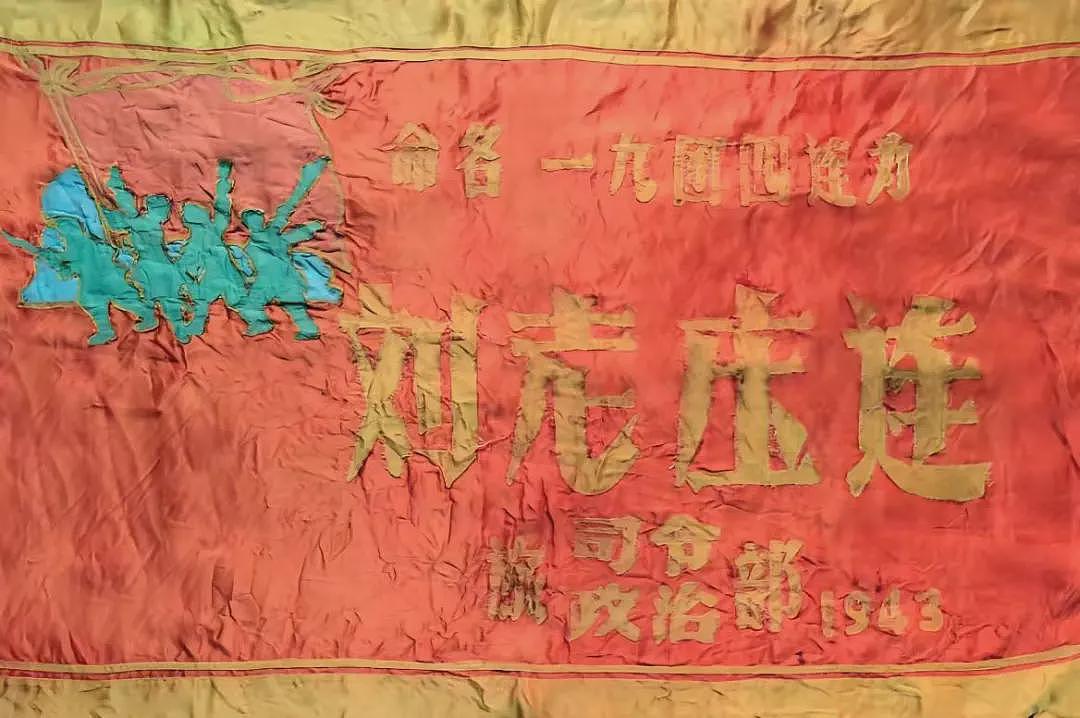 命名 一九团四连为
刘老庄连
旅司令政治部1943